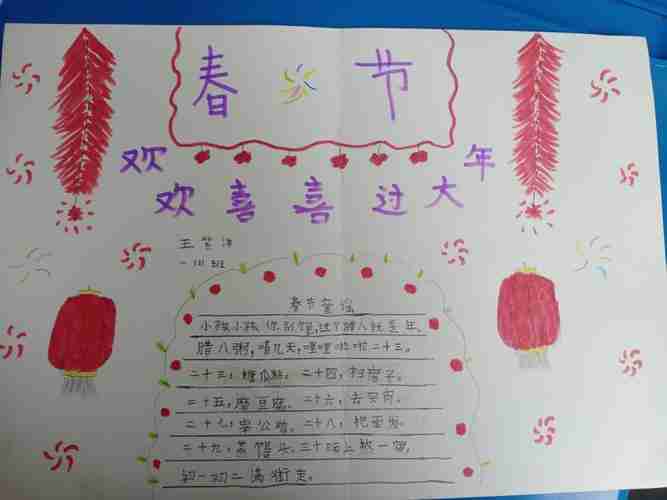 春 节
欢欢喜喜过大年
王
一(1)班
春节童谣
小孩小孩你别馋,过了腊八就是年。
腊八粥,喝几天,哩哩啦啦二十三。
二十三,糖瓜粘。二十四,扫房子。
二十五,磨豆腐。二十六,去买肉。
二十七,宰公鸡。二十八,把面发。
二十九,蒸馒头。三十晚上熬一宿,
初一初二满街走。